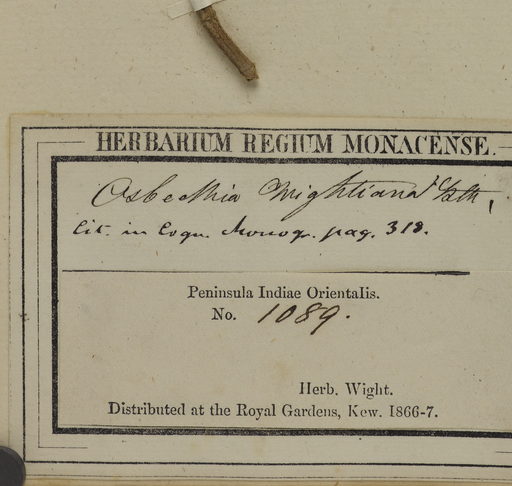 HERBARIUM REGIUM MONACENSE.
Osbeckia Wightiana Bth,
Cit. in Cogn. Monogr. pag. 318.
Peninsula Indiae Orientalis.
No. 1089.
Herb. Wight.
Distributed at the Royal Gardens, Kew. 1866-7.